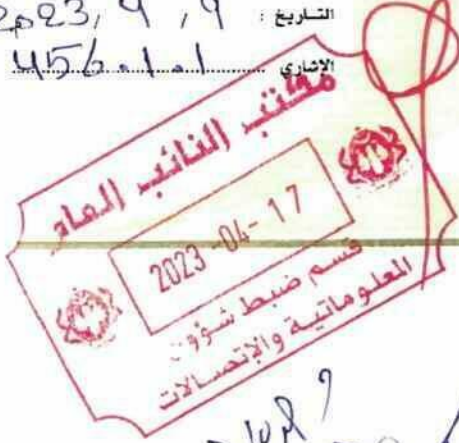 التاريخ : 2023, 9, 9
الإشاري 456.1.1
مكتب النائب العام
2023-04-17
قسم ضبط شؤون
المعلوماتية والإتصالات